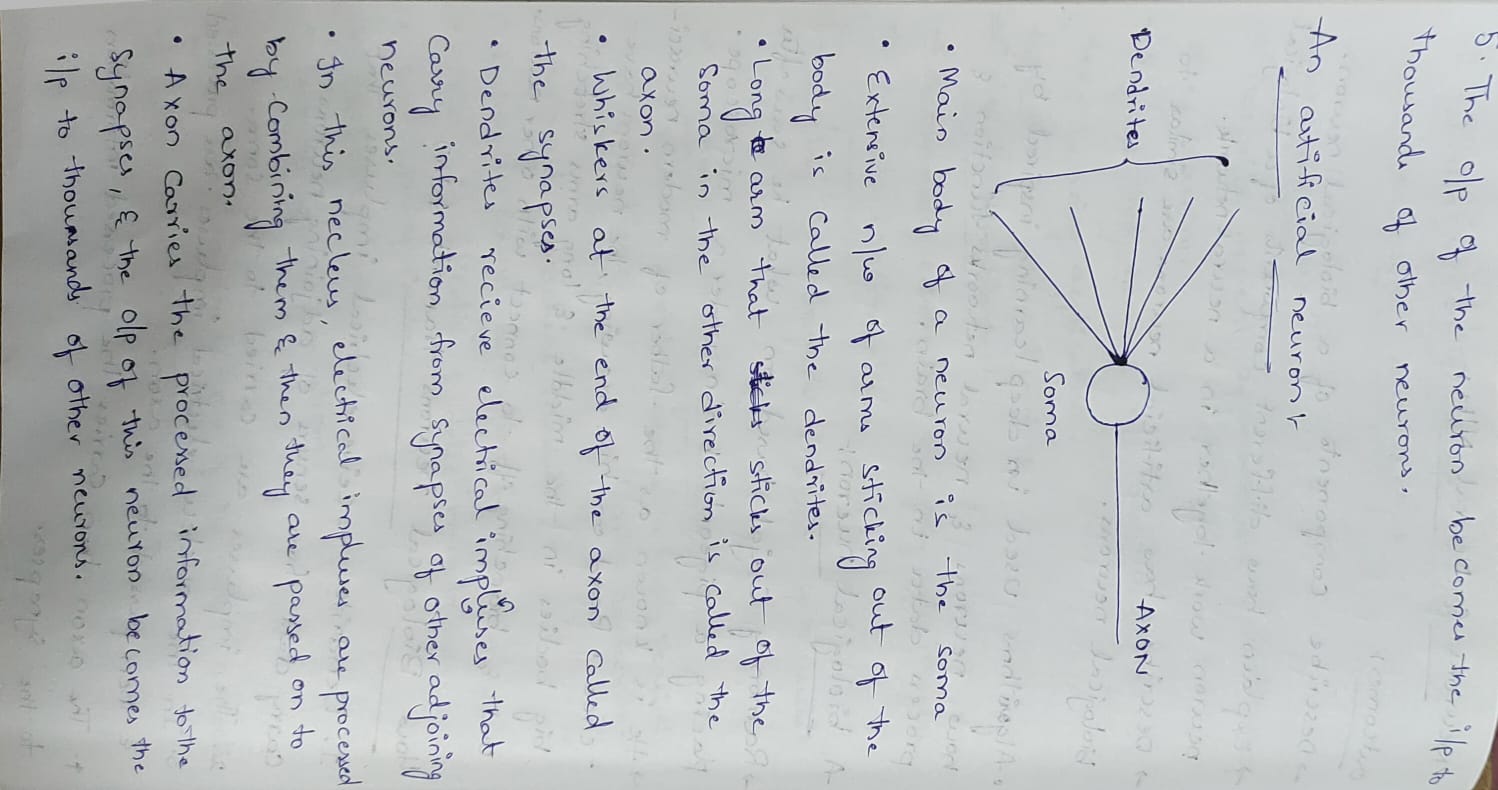 5. The o/p of the neuron becomes the i/p to
thousands of other neurons.
An artificial neuron:
Dendrites
AXON
Soma
• Main body of a neuron is the soma
• Extensive n/w of arms sticking out of the
body is called the dendrites.
• Long arm that sticks sticks out of the
Soma in the other direction is called the
axon.
• Whiskers at the end of the axon called
the synapses.
• Dendrites recieve electrical impluses that
Carry information from synapses of other adjoining
neurons.
• In this necleus, electrical impluses are processed
by Combining them & then they are passed on to
the axon.
• Axon Carries the processed information to the
Synapses, & the o/p of this neuron becomes the
i/p to thousands of other neurons.